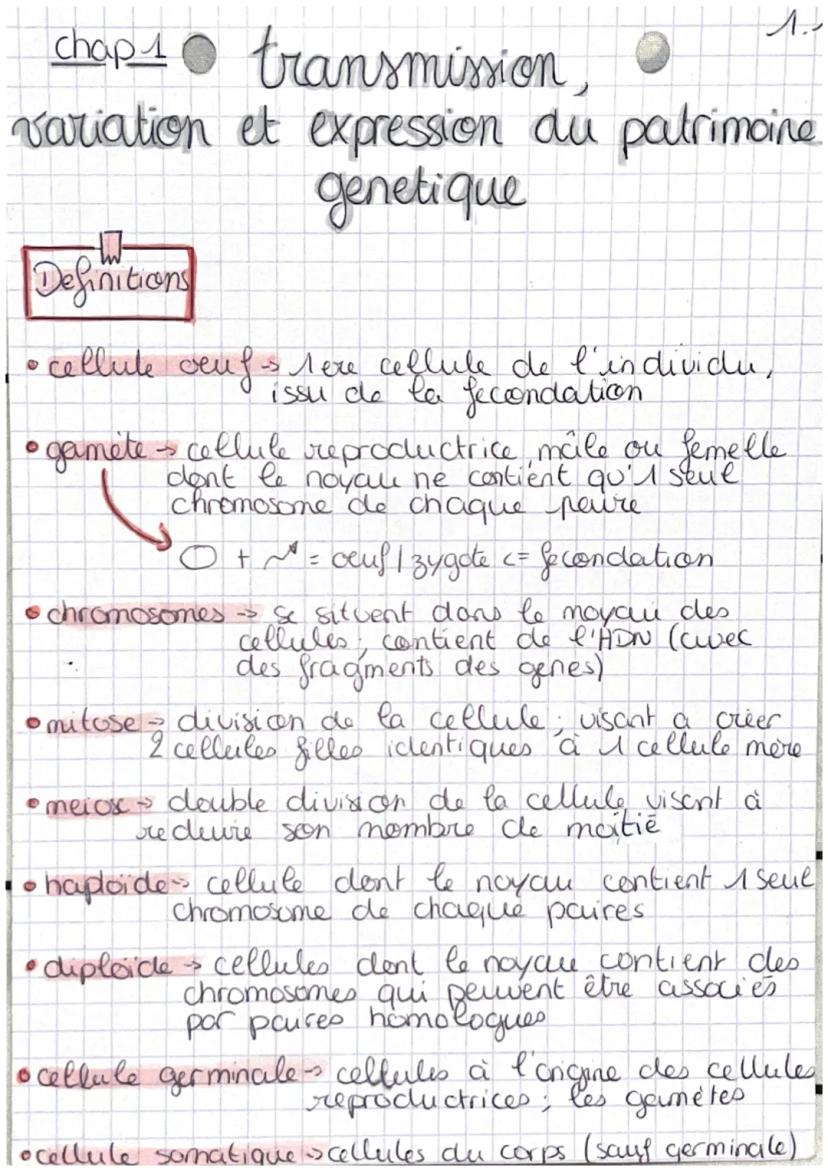 1.
chap 1 transmission,
variation et expression du patrimoine
genetique
Definitions
• cellule oeuf → 1ere cellule de l'individu,
issu de la fecondation
• gamète → cellule reproductrice mâle ou femelle
dont le noyau ne contient qu'1 seul
chromosome de chaque paire
+ = oeuf / zygote <= fecondation
• chromosomes → se situent dans le noyau des
cellules ; contient de l'ADN (avec
des fragments des genes)
• mitose → division de la cellule ; visant a créer
2 cellules filles identiques à 1 cellule mère
• meiose → double division de la cellule visant à
reduire son nombre de moitié
• haploïde → cellule dont le noyau contient 1 seul
chromosome de chaque paires
• diploïde → cellules dont le noyau contient des
chromosomes qui peuvent être associés
par paires homologues
• cellule germinale → cellules à l'origine des cellules
reproductrices ; les gamètes
• cellule somatique → cellules du corps (sauf germinale)